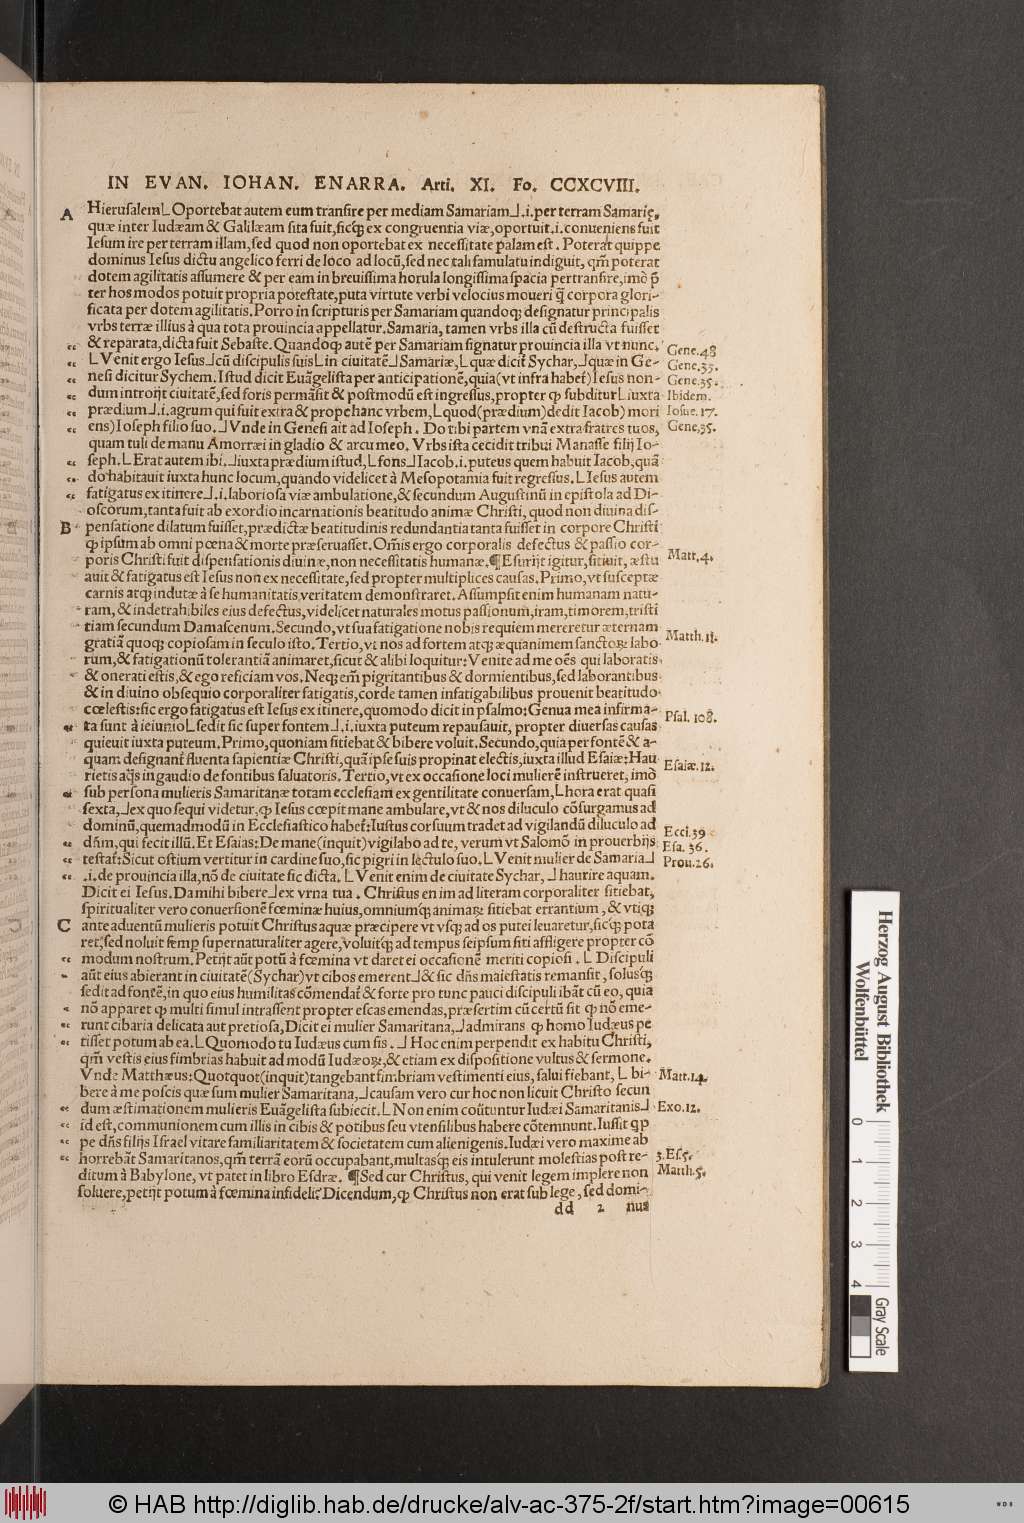 IN EVAN. IOHAN. ENARRA. Arti. XI. Fo. CCXCVIII.
A Hierusalem⅃Oportebat autem eum transire per mediam Samariam⅃.i. per terram Samarię,
quæ inter Iudæam & Galilæam sita fuit, sicq; ex congruentia viæ, oportuit .i. conueniens fuit
Iesum ire per terram illam, sed quod non oportebat ex necessitate palam est. Poterat quippe
dominus Iesus dictu angelico ferri de loco ad locū, sed nec tali famulatu indiguit, qm̄ poterat
dotem agilitatis assumere & per eam in breuissima horula longissima spacia pertransire, imò p̄
ter hos modos potuit propria potestate, puta virtute verbi velocius moueri q̄ corpora glori-
ficata per dotem agilitatis. Porro in scripturis per Samariam quandoq; designatur principalis
vrbs terræ illius à qua tota prouincia appellatur. Samaria, tamen vrbs illa cū destructa fuisset
& reparata, dicta fuit Sebaste. Quandoq; autē per Samariam signatur prouincia illa vt nunc.
L Venit ergo Iesus⅃cū discipulis suis L in ciuitatē⅃Samariæ, L quæ dicit̄ Sychar,⅃quæ in Ge- Gene.48
nesi dicitur Sychem. Istud dicit Euāgelista per anticipationē, quia (vt infra habet̄) Iesus non- Gene.35. Gene.35.
dum introijt ciuitatē, sed foris permāsit & postmodū est ingressus, propter ꝙ subditur L iuxta Ibidem.
prædium⅃.i. agrum qui fuit extra & prope hanc vrbem, L quod (prædium) dedit Iacob) mori Iosue.17.
ens) Ioseph filio suo.⅃Vnde in Genesi ait ad Ioseph. Do tibi partem vnā extra fratres tuos, Gene.35.
quam tuli de manu Amorræi in gladio & arcu meo. Vrbs ista cecidit tribui Manasse filij Io-
seph. L Erat autem ibi.⅃iuxta prædium istud, L fons⅃Iacob .i. puteus quem habuit Iacob, quā
do habitauit iuxta hunc locum, quando videlicet à Mesopotamia fuit regressus. L Iesus autem
fatigatus ex itinere⅃.i. laboriosa viæ ambulatione, & secundum Augustinū in epistola ad Di-
oscorum, tanta fuit ab exordio incarnationis beatitudo animæ Christi, quod non diuina dis-
B pensatione dilatum fuisset, prædictæ beatitudinis redundantia tanta fuisset in corpore Christi
ꝙ ipsum ab omni pœna & morte præseruasset. Om̄is ergo corporalis defectus & passio cor-
poris Christi fuit dispensationis diuinæ, non necessitatis humanæ. ¶Esurijt igitur, sitiuit, æstu Matt.4.
auit & fatigatus est Iesus non ex necessitate, sed propter multiplices causas. Primo, vt susceptæ
carnis atq; indutæ à se humanitatis veritatem demonstraret. Assumpsit enim humanam natu-
ram, & indetrahibiles eius defectus, videlicet naturales motus passionum, iram, timorem, tristi
tiam secundum Damascenum. Secundo, vt sua fatigatione nobis requiem mereretur æternam
gratiā quoq; copiosam in seculo isto. Tertio, vt nos ad fortem atq; æquanimem sanctoꝝ labo Matth.11.
rum, & fatigationū tolerantiā animaret, sicut & alibi loquitur: Venite ad me oēs qui laboratis
& onerati estis, & ego reficiam vos. Neq; em̄ pigritantibus & dormientibus, sed laborantibus
& in diuino obsequio corporaliter fatigatis, corde tamen infatigabilibus prouenit beatitudo
cœlestis: sic ergo fatigatus est Iesus ex itinere, quomodo dicit in psalmo: Genua mea infirma- Psal.108.
ta sunt à ieiunio L sedit sic super fontem⅃.i. iuxta puteum repausauit, propter diuersas causas
quieuit iuxta puteum. Primo, quoniam sitiebat & bibere voluit. Secundo, quia per fontē & a-
quam designant̄ fluenta sapientiæ Christi, quā ipse suis propinat electis, iuxta illud Esaiæ: Hau Esaiæ.12.
rietis aq̄s in gaudio de fontibus saluatoris. Tertio, vt ex occasione loci mulierē instrueret, imò
sub persona mulieris Samaritanæ totam ecclesiam ex gentilitate conuersam, L hora erat quasi
sexta,⅃ex quo sequi videtur, ꝙ Iesus cœpit mane ambulare, vt & nos diluculo cōsurgamus ad
dominū, quemadmodū in Ecclesiastico habet̄: Iustus cor suum tradet ad vigilandū diluculo ad Eccl.39
dn̄m, qui fecit illū. Et Esaias: De mane (inquit) vigilabo ad te, verum vt Salomō in prouerbijs Esa.36.
testat̄: Sicut ostium vertitur in cardine suo, sic pigri in lectulo suo. L Venit mulier de Samaria⅃ Prou.26.
.i. de prouincia illa, nō de ciuitate sic dicta. L Venit enim de ciuitate Sychar,⅃haurire aquam.
Dicit ei Iesus. Da mihi bibere⅃ex vrna tua. Christus enim ad literam corporaliter sitiebat,
spiritualiter vero conuersionē fœminæ huius, omniumq; animaꝝ sitiebat errantium, & vtiq;
C ante aduentū mulieris potuit Christus aquæ præcipere vt vsq; ad os putei leuaretur, sicq; pota
ret, sed noluit semp supernaturaliter agere, voluitq; ad tempus seipsum siti affligere propter cō
modum nostrum. Petijt aūt potū à fœmina vt daret ei occasionē meriti copiosi. L Discipuli
aūt eius abierant in ciuitatē (Sychar) vt cibos emerent⅃& sic dn̄s maiestatis remansit, solusq;
sedit ad fontē, in quo eius humilitas cōmendat̄ & forte pro tunc pauci discipuli ibāt cū eo, quia
nō apparet ꝙ multi simul intrassent propter escas emendas, præsertim cū certū sit ꝙ nō eme-
runt cibaria delicata aut pretiosa, Dicit ei mulier Samaritana,⅃admirans ꝙ homo Iudæus pe
tisset potum ab ea. L Quomodo tu Iudæus cum sis.⅃Hoc enim perpendit ex habitu Christi,
qm̄ vestis eius fimbrias habuit ad modū Iudæoꝝ, & etiam ex dispositione vultus & sermone.
Vnde Matthæus: Quotquot (inquit) tangebant fimbriam vestimenti eius, salui fiebant, L bi- Matt.14.
bere à me poscis quæ sum mulier Samaritana,⅃causam vero cur hoc non licuit Christo secun
dum æstimationem mulieris Euāgelista subiecit. L Non enim coūtuntur Iudæi Samaritanis⅃ Exo.12.
id est, communionem cum illis in cibis & potibus seu vtensilibus habere cōtemnunt. Iussit q̄p
pe dn̄s filijs Israel vitare familiaritatem & societatem cum alienigenis. Iudæi vero maxime ab
horrebāt Samaritanos, qm̄ terrā eorū occupabant, multasq; eis intulerunt molestias post re- 3.Es.5.
ditum à Babylone, vt patet in libro Esdræ. ¶Sed cur Christus, qui venit legem implere non Matth.5.
soluere, petijt potum à fœmina infideli? Dicendum, ꝙ Christus non erat sub lege, sed domi-
dd 2 nus
Herzog August Bibliothek
Wolfenbüttel
0 1 2 3 4
Gray Scale
© HAB http://diglib.hab.de/drucke/alv-ac-375-2f/start.htm?image=00615